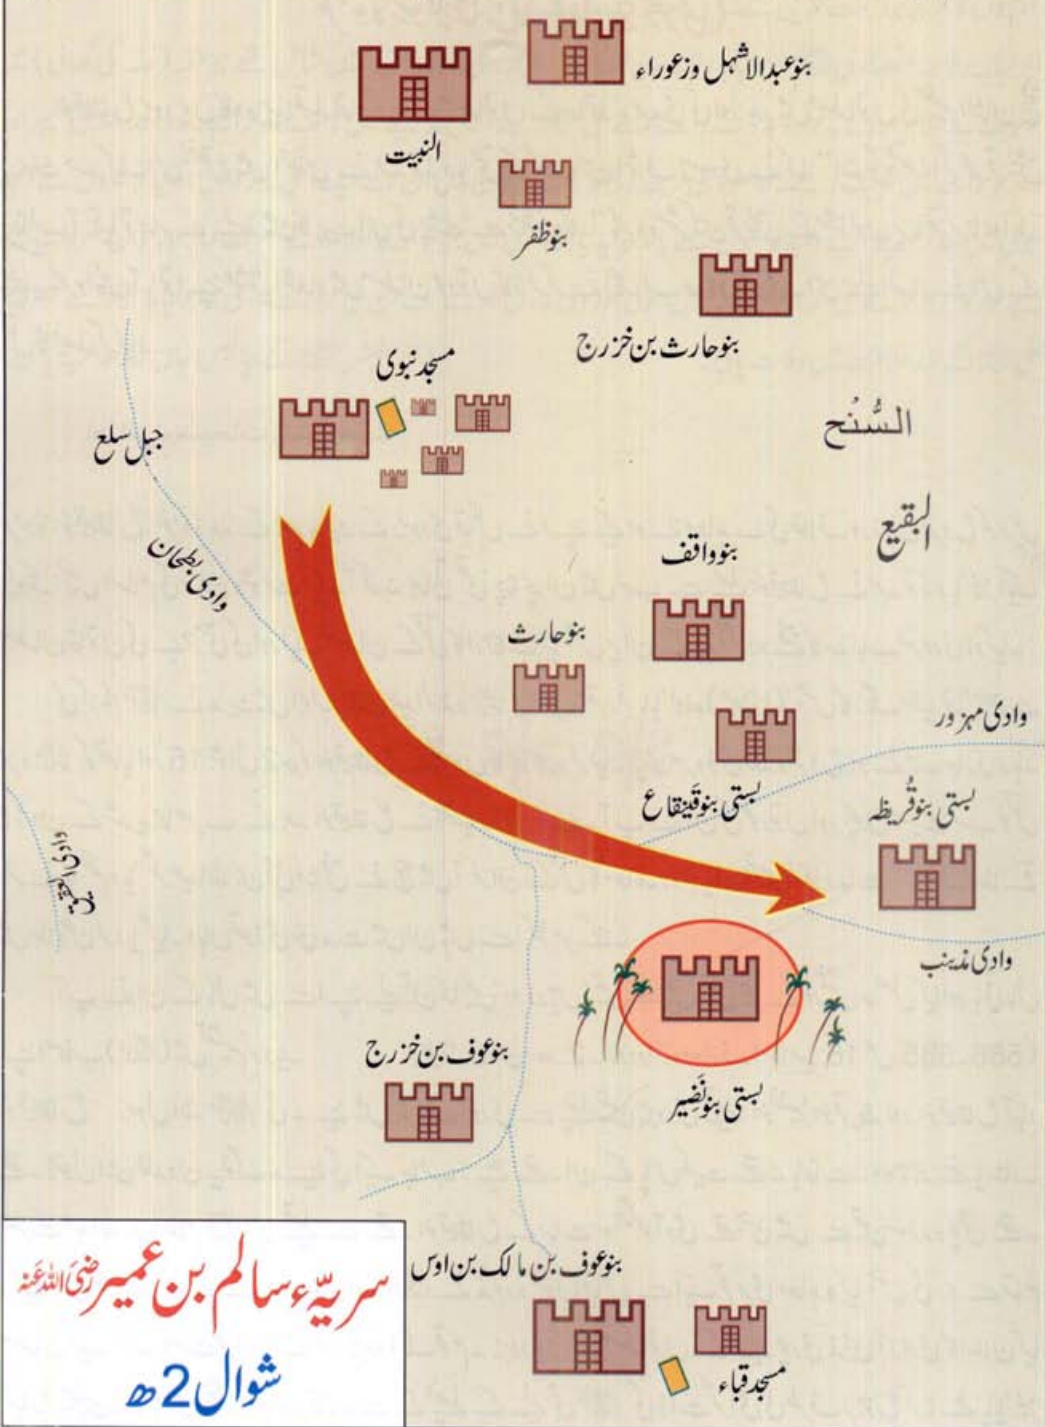 بنو عبدالاشہل و زعوراء
النبیت
بنو ظفر
بنو حارث بن خزرج
مسجد نبوی
السُّنُح
جبل سلع
البقیع
بنو واقف
وادی بطحان
بنو حارث
وادی مہزور
بستی بنو قَینقاع
بستی بنو قُریظہ
وادی العقیق
وادی مذینب
بنو عوف بن خزرج
بستی بنو نَضِیر
بنو عوف بن مالک بن اوس
مسجد قباء
سریّہء سالم بن عمیر رَضِیَ اللہُ عَنہُ
شوال 2ھ